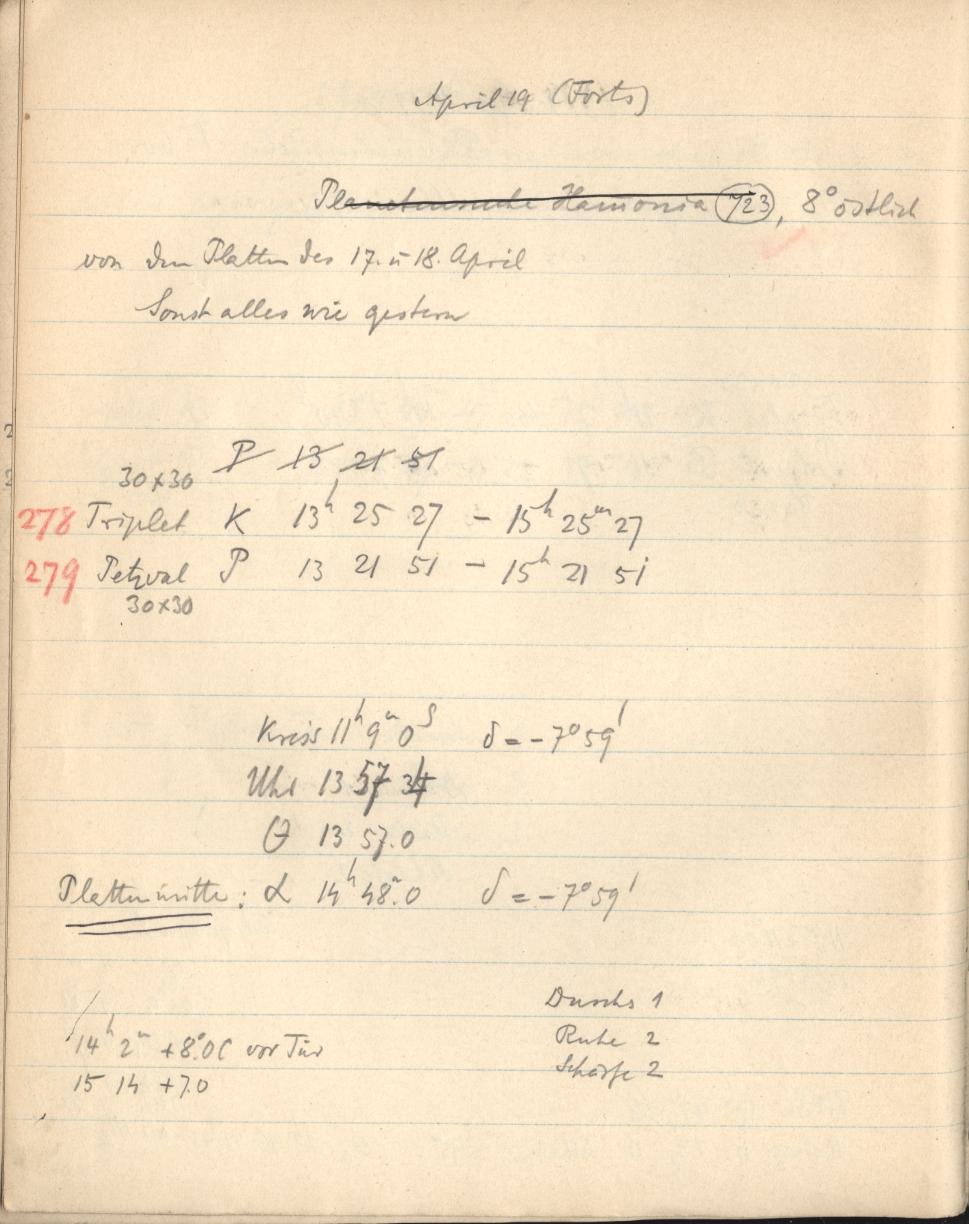 April 19 (Forts)
Planetensuche Hamonia (723), 8° östlich
von den Platten des 17. u 18. April
Sonst alles wie gestern
P 13 21 51
30x30
278 Triplet K 13h 25 27 – 15h 25m 27
279 Petzval P 13 21 51 – 15h 21 51
30x30
Kreis 11h 9m 0s δ = -7° 59'
Uhr 13 57 34
θ 13 57.0
Plattenmitte: α 14h 48m.0 δ = -7° 59'
Durchs 1
14h 2m +8°.0C vor Tür
Ruhe 2
15 14 +7.0
Schärfe 2